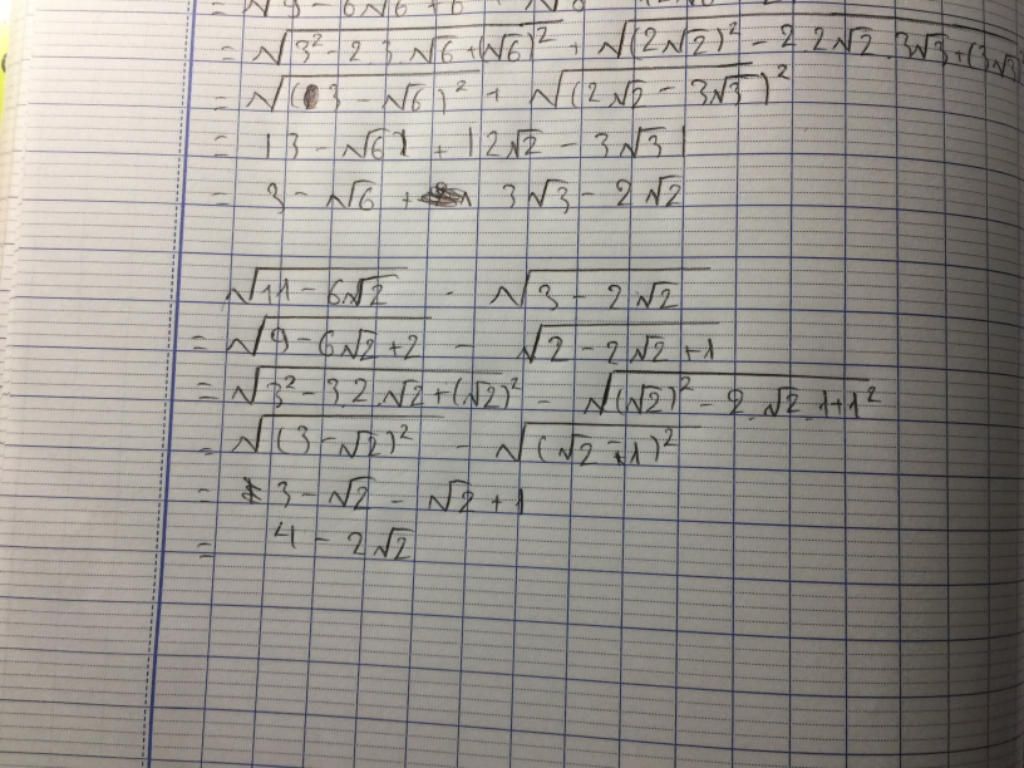 = √(3² - 2.3.√6 + (√6)²) + √((2√2)² - 2.2√2.3√3 + (3√3
= √((3 - √6)²) + √((2√2 - 3√3)²)
= |3 - √6| + |2√2 - 3√3|
= 3 - √6 + 3√3 - 2√2
√(11 - 6√2) - √(3 - 2√2)
= √(9 - 6√2 + 2) - √(2 - 2√2 + 1)
= √(3² - 3.2.√2 + (√2)²) - √((√2)² - 2.√2.1 + 1²)
= √((3 - √2)²) - √((√2 - 1)²)
= 3 - √2 - √2 + 1
= 4 - 2√2